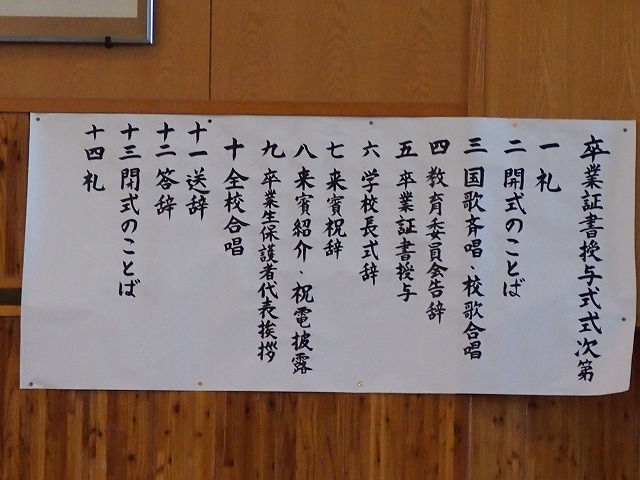 卒業証書授与式式次第
一 礼
二 開式のことば
三 国歌斉唱・校歌合唱
四 教育委員会告辞
五 卒業証書授与
六 学校長式辞
七 来賓祝辞
八 来賓紹介・祝電披露
九 卒業生保護者代表挨拶
十 全校合唱
十一 送辞
十二 答辞
十三 閉式のことば
十四 礼